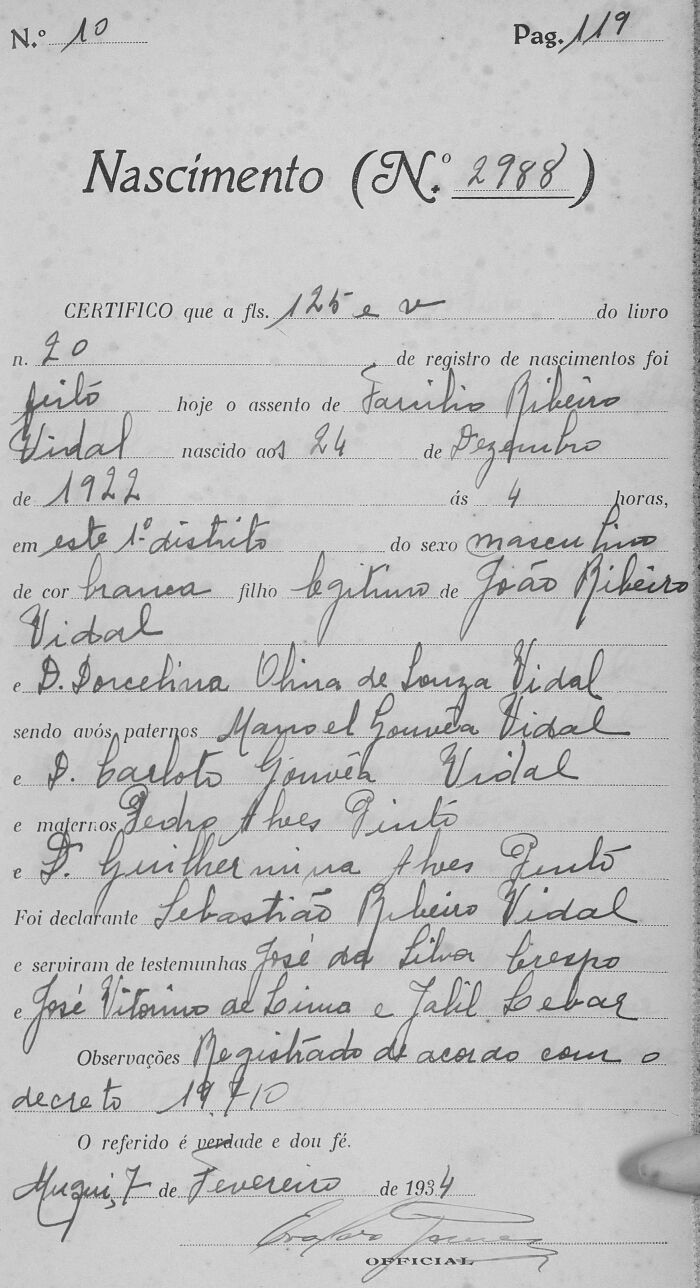 N.º 10 Pag. 119
Nascimento (N.º 2988)
CERTIFICO que a fls. 125 e v do livro
n. 20 de registro de nascimentos foi
feito hoje o assento de Ribeiro
Vidal nascido aos 24 de Dezembro
de 1922 ás 4 horas,
em este 1º distrito do sexo masculino
de cor branca filho legitimo de João Ribeiro
Vidal
e D. Dorcelina Olina de Souza Vidal
sendo avós paternos Manoel Gouvêa Vidal
e D. Carlota Gouvêa Vidal
e maternos Pedro Alves Pinto
e D. Guilhermina Alves Pinto
Foi declarante Sebastião Ribeiro Vidal
e serviram de testemunhas José da Silva Crespo
e José Vitorino de Lima e Jalil
Observações Registrado de acordo com o
decreto 19.710
O referido é verdade e dou fé.
Muqui, 7 de Fevereiro de 1934
OFFICIAL